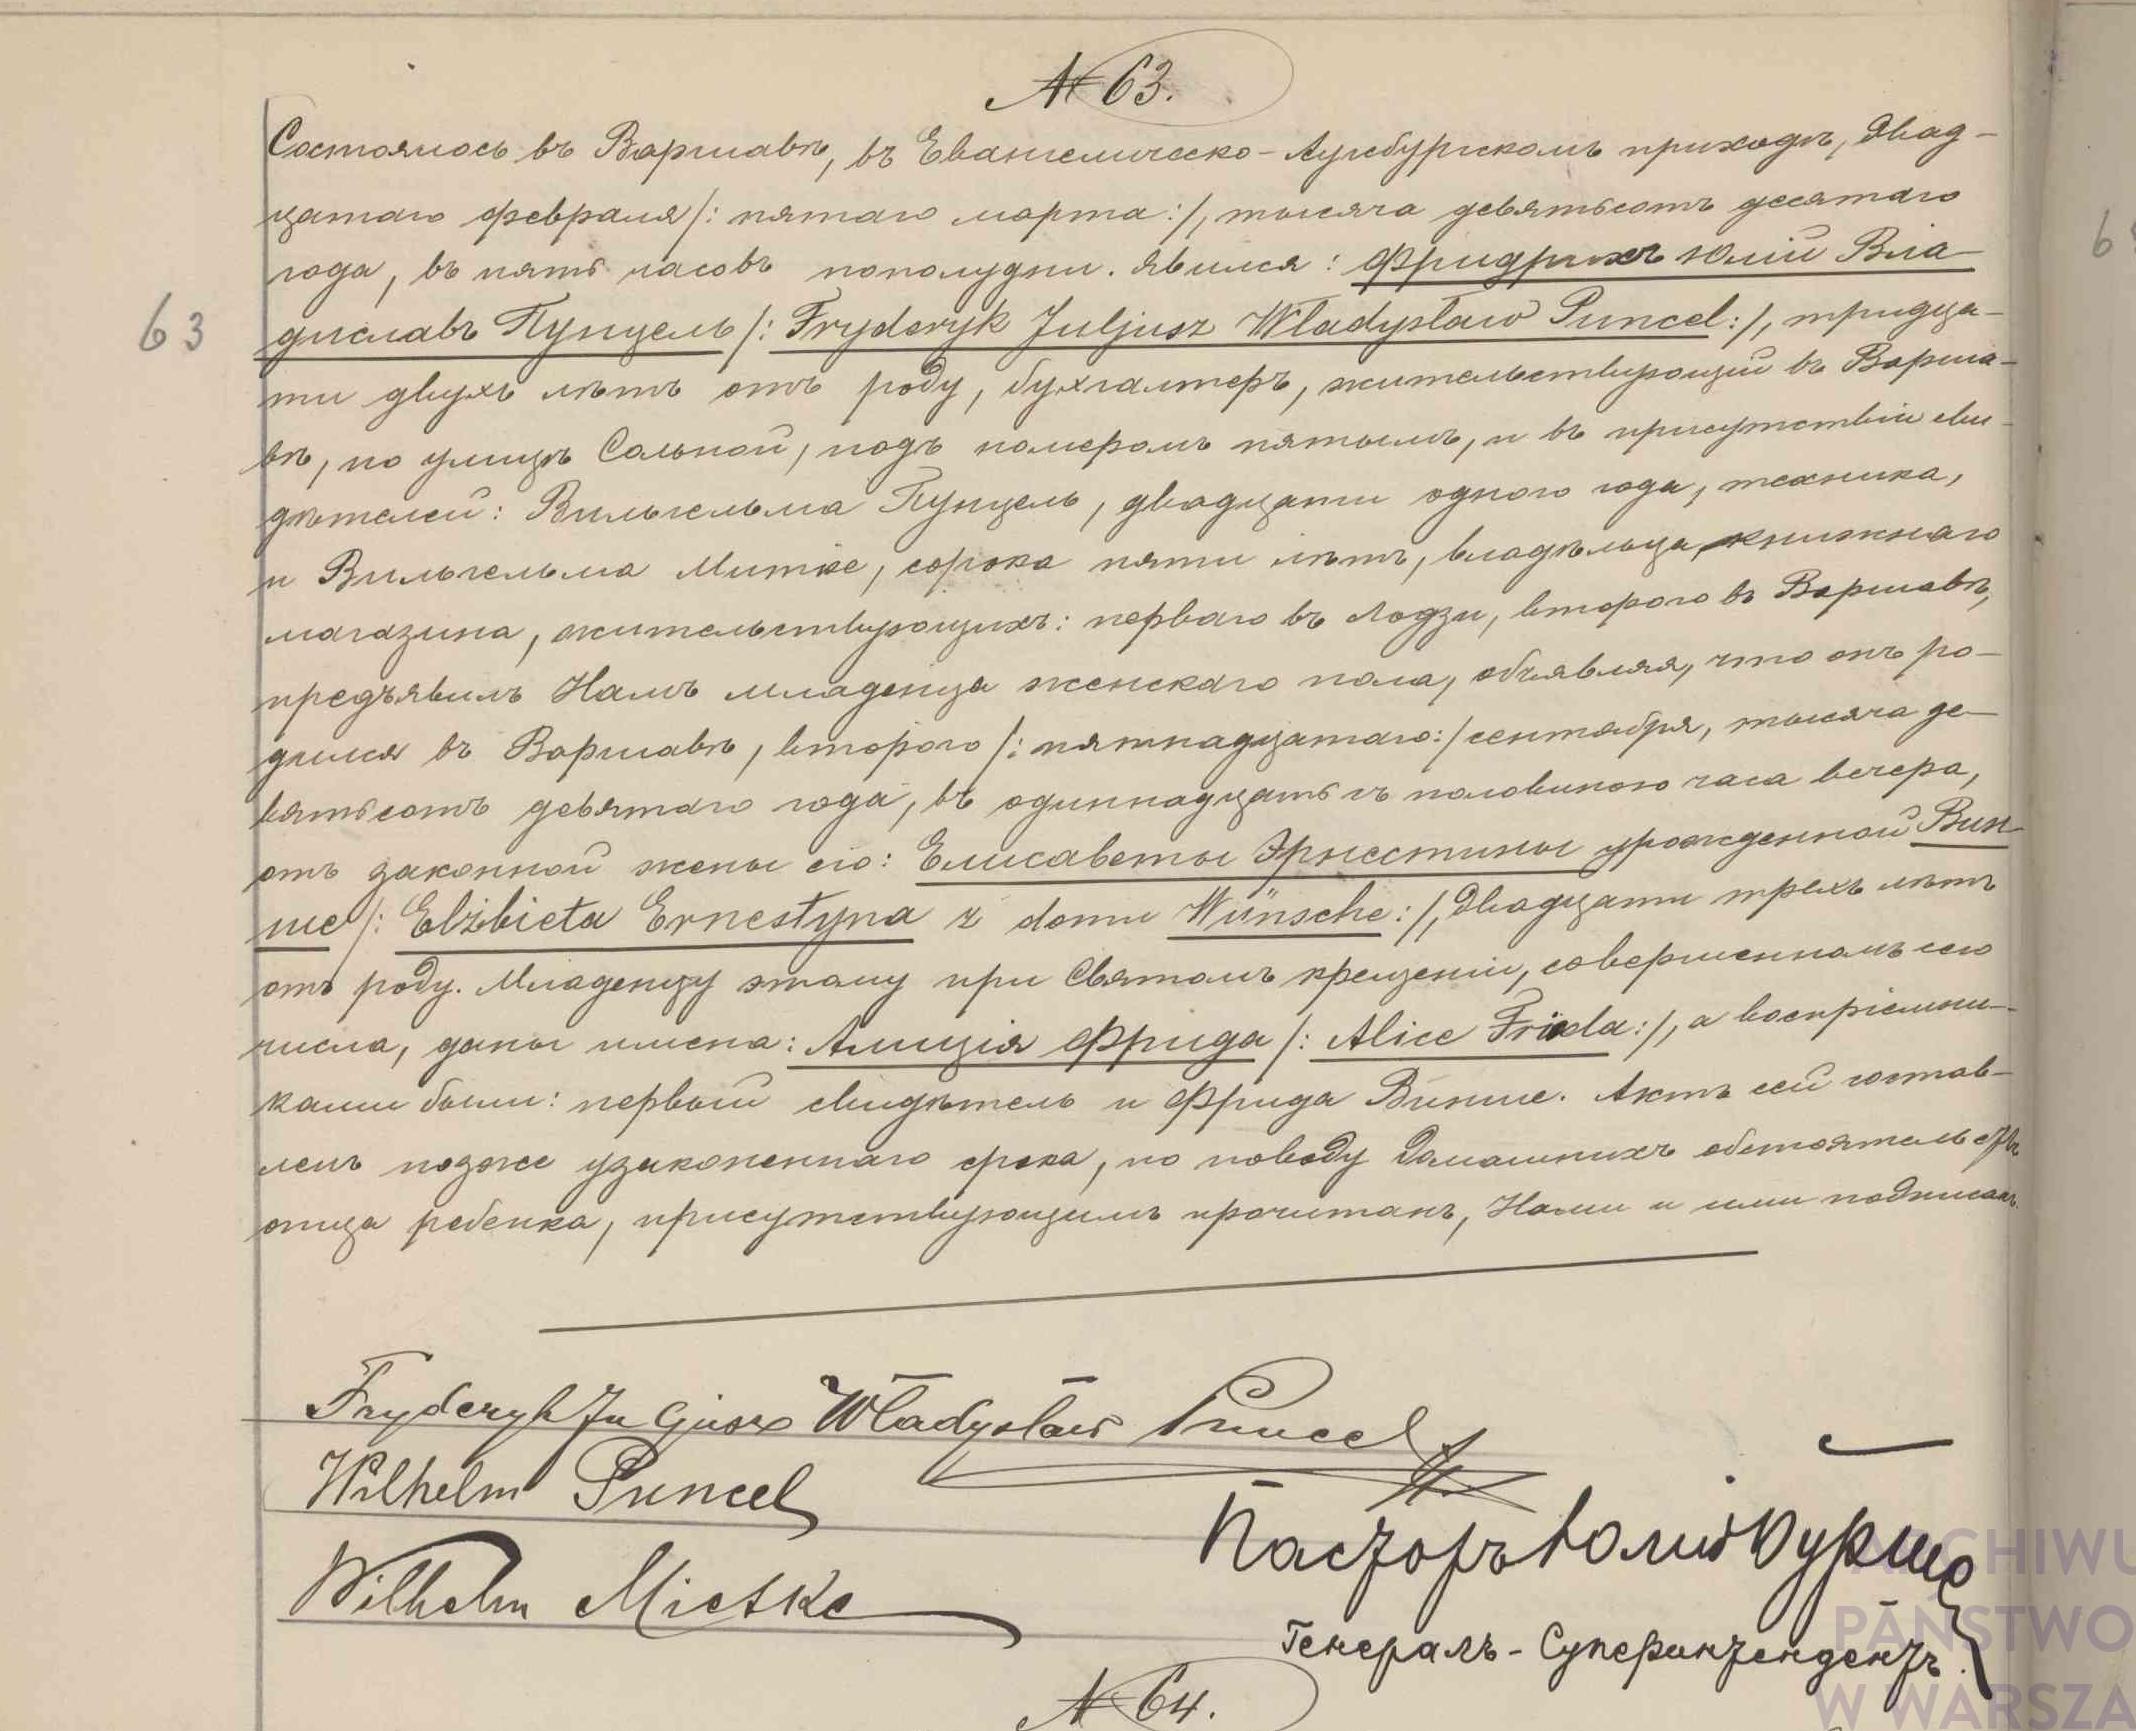 № 63.
Состоялось въ Варшавѣ, въ Евангелическо-Аугсбургскомъ приходѣ, двад-
цатаго февраля /: пятаго марта :/, тысяча девятьсотъ десятаго
года, въ пять часовъ пополудни. Явился: Фридрихъ Юлій Вла-
63
диславъ Пунцель /: Fryderyk Juljusz Władysław Puncel :/, тридца-
ти двухъ лѣтъ отъ роду, бухгалтеръ, жительствующій въ Варша-
вѣ, по улицѣ Сольной, подъ номеромъ пятымъ, и въ присутствіи сви-
дѣтелей: Вильгельма Пунцель, двадцати одного года, техника,
и Вильгельма Митке, сорока пяти лѣтъ, владѣльца книжнаго
магазина, жительствующихъ: перваго въ Лодзи, второго въ Варшавѣ,
предъявилъ Намъ младенца женскаго пола, объявляя, что онъ ро-
дился въ Варшавѣ, второго /: пятнадцатаго :/ сентября, тысяча де-
вятьсотъ девятаго года, въ одиннадцать съ половиною часа вечера,
отъ законной жены его: Елисаветы Эрнестины урожденной Вин-
ше /: Elżbieta Ernestyna z domu Wünsche :/, двадцати трехъ лѣтъ
отъ роду. Младенцу этому при Святомъ крещеніи, совершенномъ сего
числа, даны имена: Алиція Фрида /: Alice Frida :/, а воспріемни-
ками были: первый свидѣтель и Фрида Винше. Актъ сей состав-
ленъ позже узаконеннаго срока, по поводу домашнихъ обстоятельствъ
отца ребенка, присутствующимъ прочитанъ, Нами и ими подписанъ.
Fryderyk Juljusz Władysław Puncel
Wilhelm Puncel
Пасторъ Юлій Бурше
Wilhelm Mietke
Генералъ-Суперинтендентъ.
№ 64.
ARCHIWU
PAŃSTWO
W WARSZA